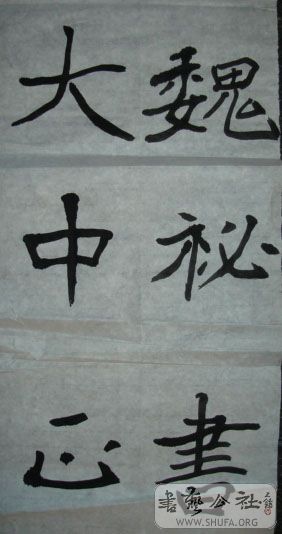 魏祕書
大中正
書藝公社
WWW.SHUFA.ORG